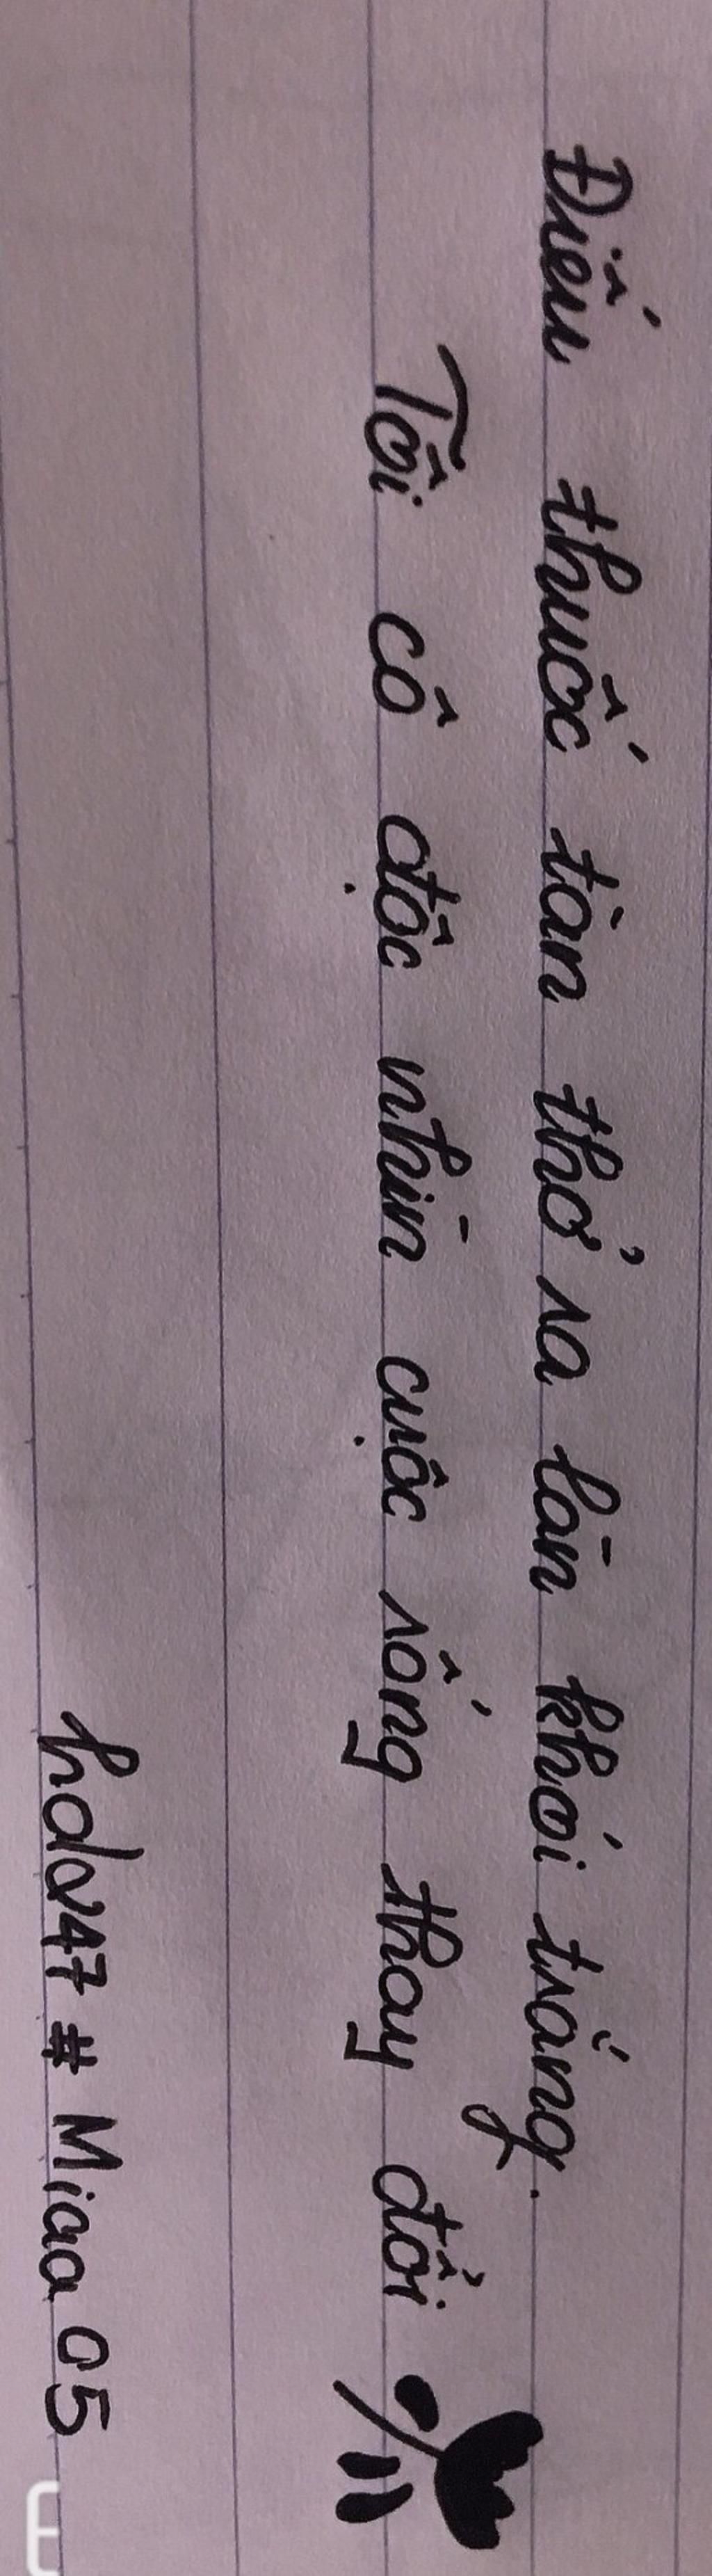 Điếu thuốc tàn thở ra làn khói trắng.
Tôi cô độc nhìn cuộc sống thay đổi
hd247 # Miaa 05